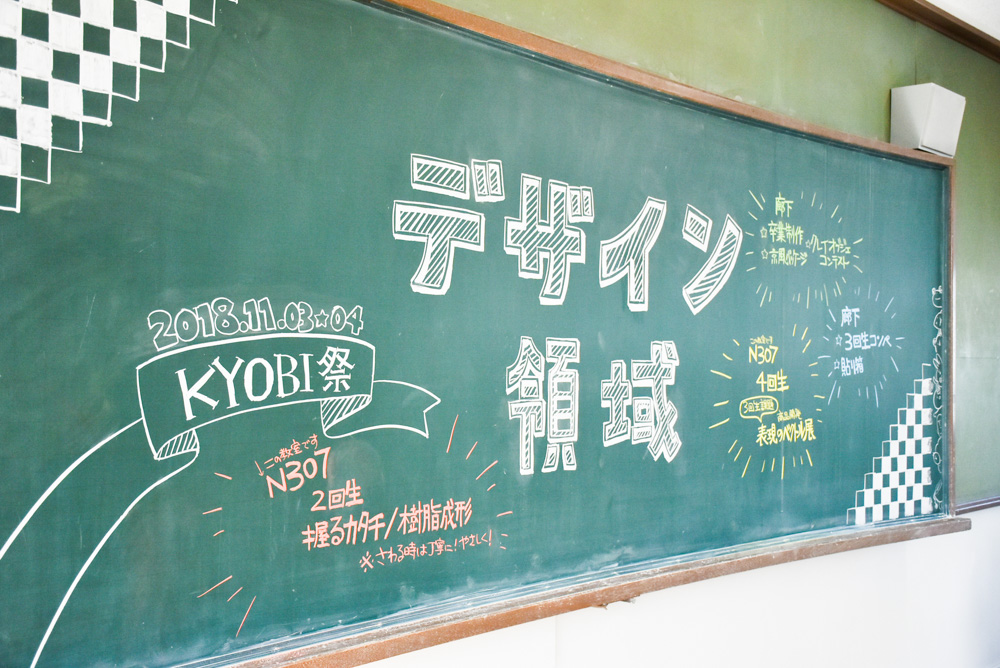 デザイン
領域
2018.11.03☆04
KYOBI祭
↓この教室です
N307
2回生
握るカタチ/樹脂成形
※さわる時は丁寧に!やさしく!
廊下
☆卒業制作
☆クレイオージェ
コンテスト
廊下
☆3回生コンペ
☆貼り箱
この上です
N307
4回生
3回生課題
表現のベクトル展